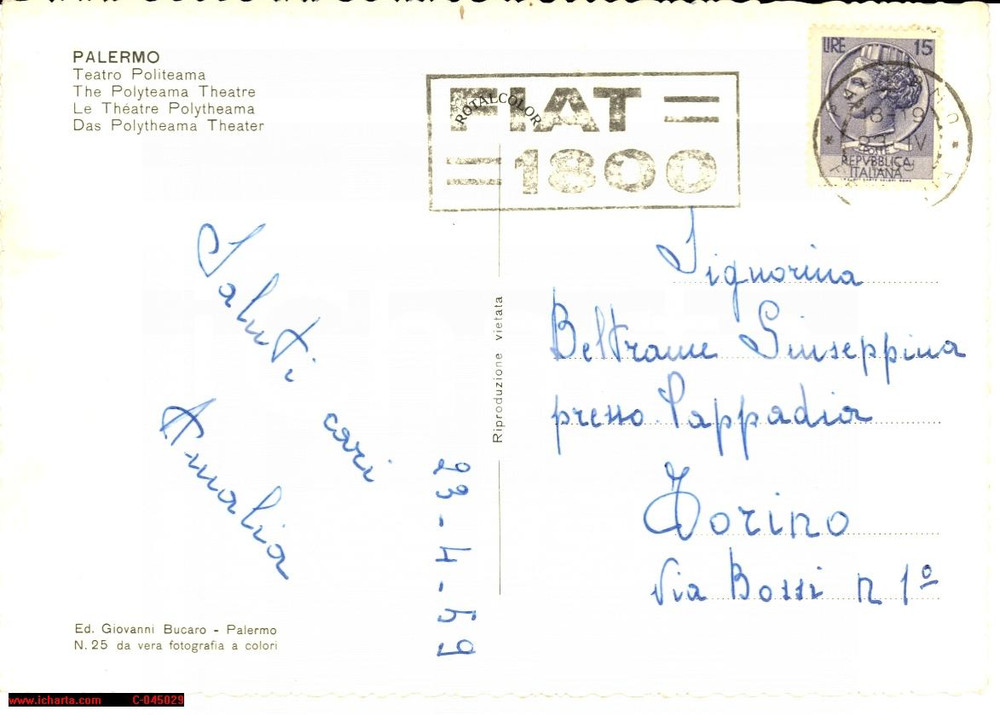 PALERMO
Teatro Politeama
The Polyteama Theatre
Le Théatre Polytheama
Das Polytheama Theater
ROTALCOLOR
FIAT
1800
LIRE 15
POSTE
REPVBBLICA
ITALIANA
Saluti cari
Amalia
23-4-59
Riproduzione vietata
Signorina
Beltrame Giuseppina
presso Pappadia
Torino
Via Bossi n 1º
Ed. Giovanni Bucaro - Palermo
N. 25 da vera fotografia a colori
www.icharta.com C-045029